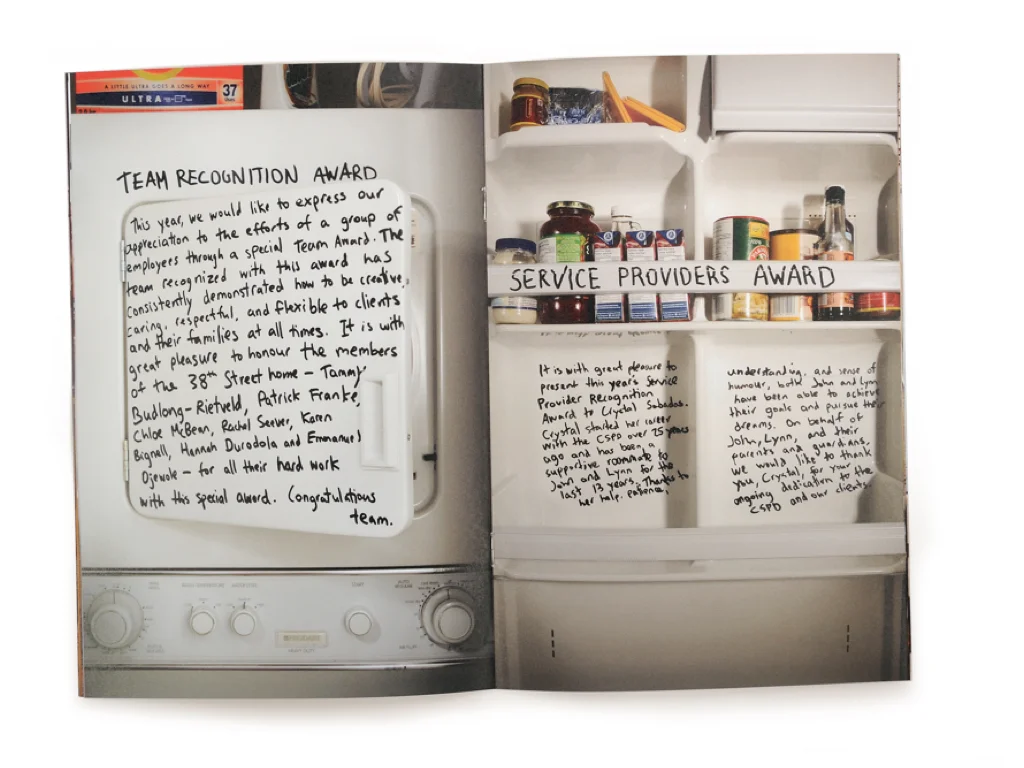 A LITTLE ULTRA GOES A LONG WAY
ULTRA
37
TEAM RECOGNITION AWARD
This year, we would like to express our
appreciation to the efforts of a group of
employees through a special Team Award. The
team recognized with this award has
consistently demonstrated how to be creative,
caring, respectful, and flexible to clients
and their families at all times. It is with
great pleasure to honour the members
of the 38th Street home – Tammy
Budlong-Rietveld, Patrick Franke,
Chloe McBean, Rachel Seever, Karen
Bignell, Hannah Durodola and Emmanuel
Ojewole – for all their hard work
with this special award. Congratulations
team.
SERVICE PROVIDERS AWARD
It is with great pleasure to
present this year's Service
Provider Recognition
Award to Crystal Sabados.
Crystal started her career
with the CSPD over 25 years
ago and has been a
supportive roommate to
John and Lynn for the
last 13 years. Thanks to
her help, patience,
understanding, and sense of
humour, both John and Lynn
have been able to achieve
their goals and pursue their
dreams. On behalf of
John, Lynn, and their
parents and guardians,
we would like to thank
you, Crystal, for your
ongoing dedication to the
CSPD and our clients.